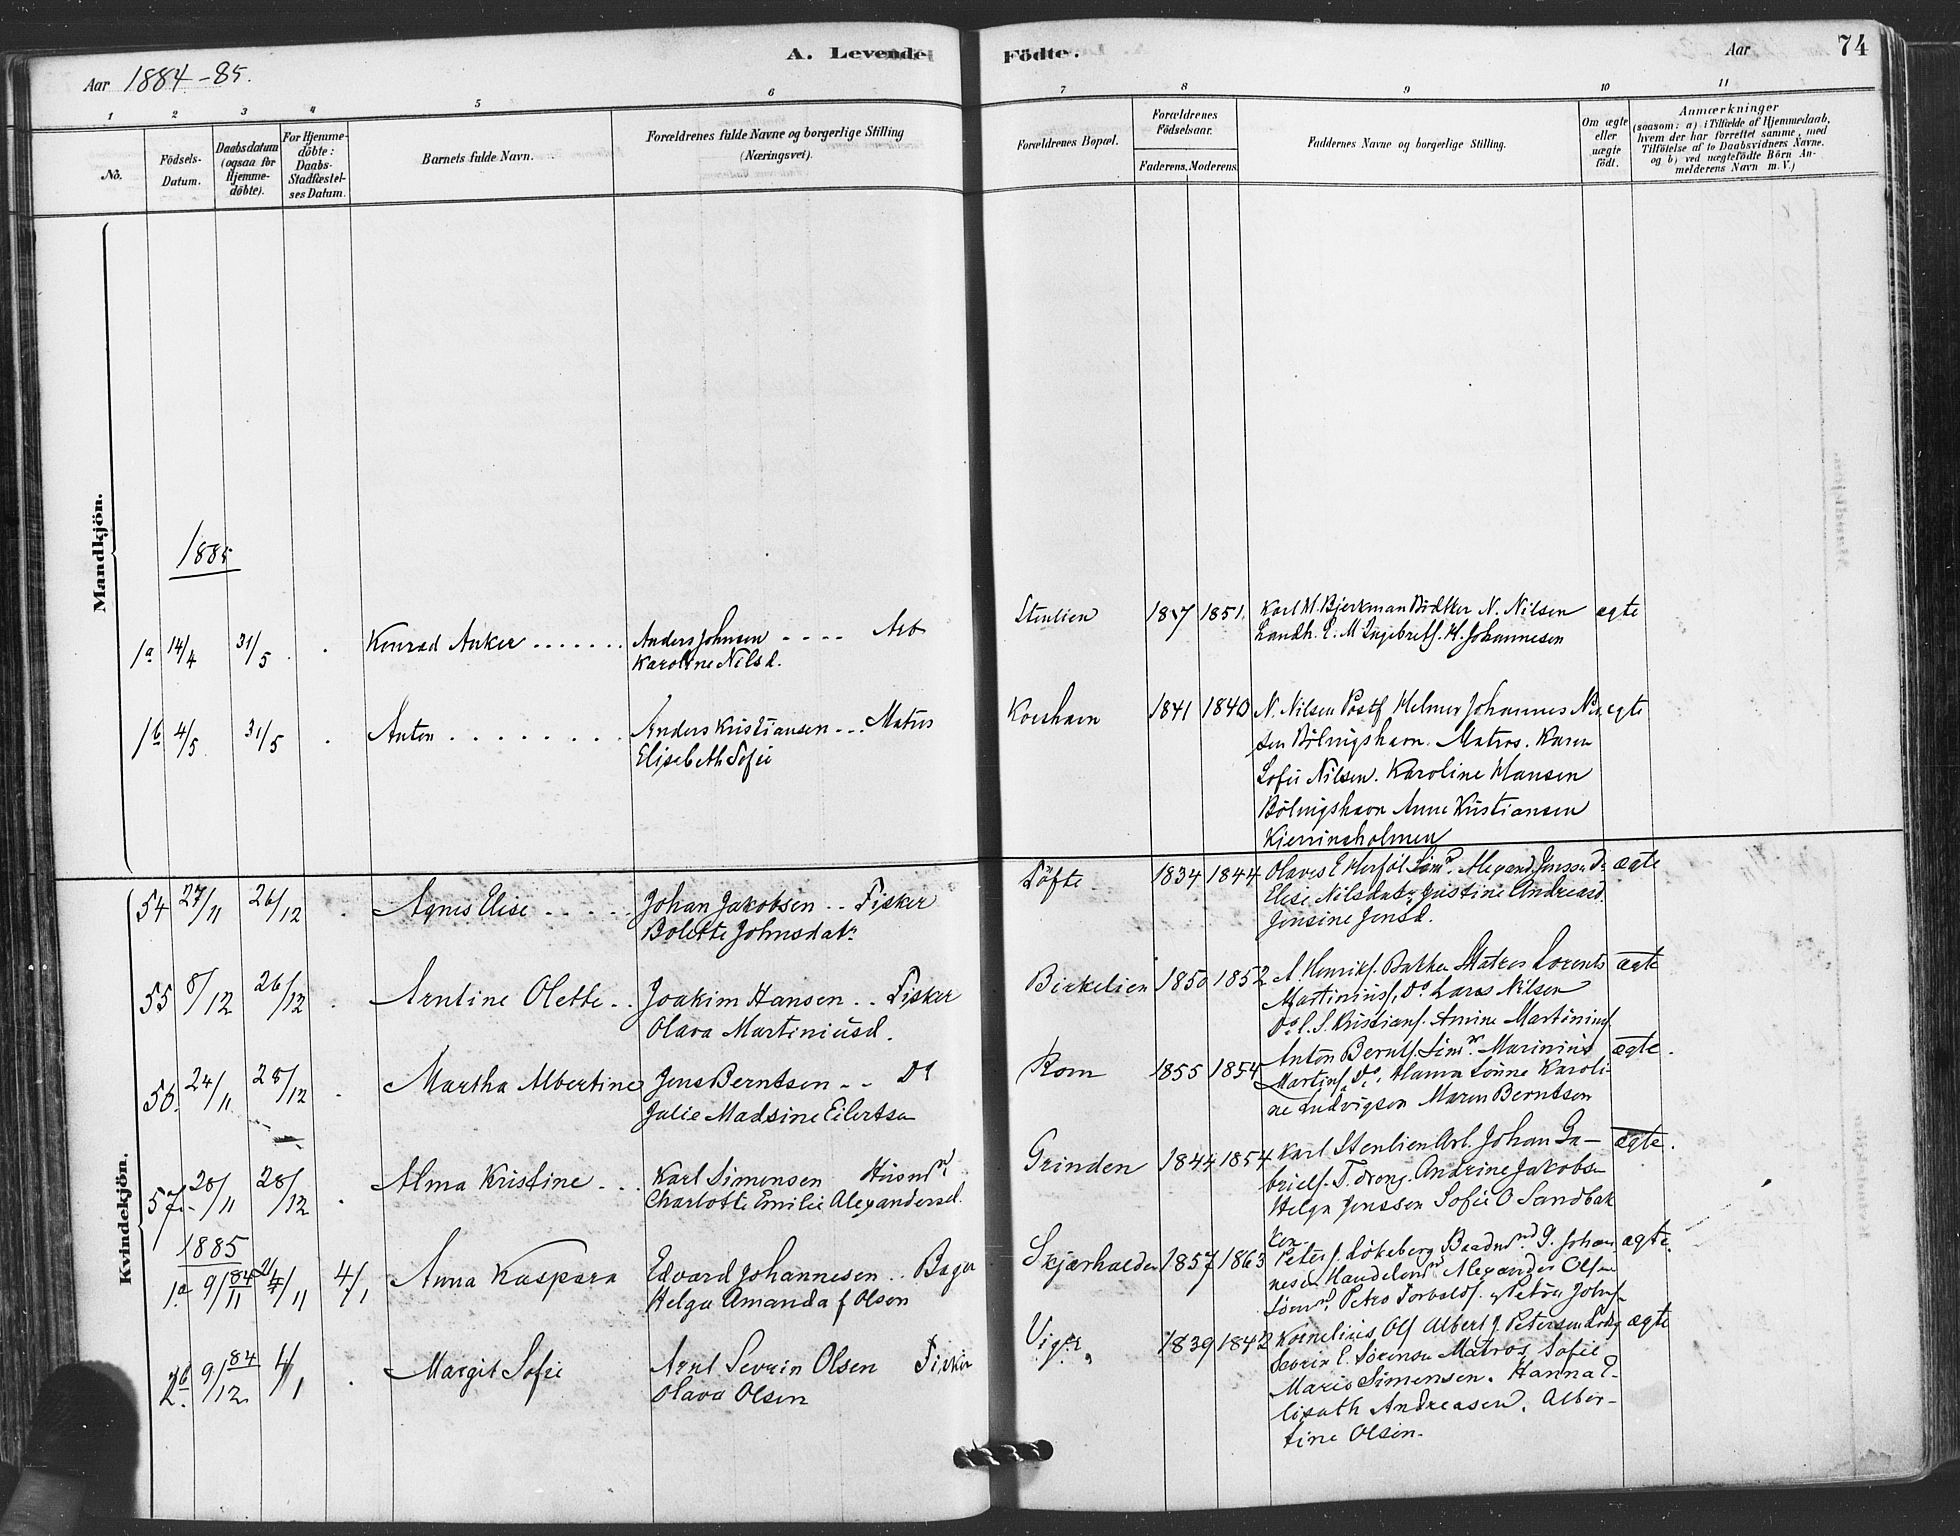 Aar 1884-85.
A. Levende
Födte.
Aar
74
1 2 3 4 5 6 7 8 9 10 11
No.
Födsels-
Datum.
Daabsdatum
(ogsaa for
Hjemme-
döbte).
For Hjemme-
döbte:
Daabs-
Stadfæstel-
ses Datum.
Barnets fulde Navn.
Forældrenes fulde Navne og borgerlige Stilling
(Næringsvei).
Forældrenes Bopæl.
Forældrenes
Födselsaar.
Faderens. Moderens.
Faddernes Navne og borgerlige Stilling.
Om ægte
eller
uægte
födt.
Anmærkninger
(saasom: a) i Tilfælde af Hjemmedaab,
hvem der har forrettet samme, med
Tilföielse af to Daabsvidners Navne.
og b) ved uægtefödte Börn An-
melderens Navn m. V.)
Mandkjön.
1885
1a 14/4 31/5 Konrad Anker Anders Johnsen Arb
Karoline Nilsd.
Stenlien 1851. Karl M. Bjerkman N. Nilsen ægte
Landh. E. M Ingebretf. H. Johannesen
1b 4/5 31/5 Anton Anders Kristiansen Matros
Elisebeth Sofie
Korshavn 1841 1840 N. Nilsen Postf Helmer Johannes Nil ægte
sen Bölingshavn. Matros. Karen
Sofie Nilsen. Karoline Hansen
Bölingshavn Anne Kristiansen
Kjerringholmen
Kvindekjön.
54 27/11 26/12 Agnes Elise Johan Jakobsen Fisker
Bolette Johnsdatr
Töfte 1834 1844 Olaves E Herföl Sömd. Alexand Jenssen Do ægte
Elise Nilsdatr Justine Andreasd.
Jensine Jensd.
55 8/12 26/12 Arntine Olette Joakim Hansen Fisker
Olava Martiniusd.
Birkelien 1850 1852 A. Henrikf. Bakken Matros Lorents ægte
Martiniusf. Do Lars Nilsen
Do L. S. Kristianf. Amine Martininsf
56. 24/11 28/12 Martha Albertine Jens Berntsen Do
Julie Madsine Eilertsen
Rom 1855 1854 Anton Berntf. Sömd. Marinius ægte.
Martinf. Do. Hanna Karoli-
ne Ludvigsen Maren Berntsen
57. 20/11 28/12 Alma Kristine Karl Simensen Husmd
Charlotte Emilie Alexandersd.
Grinden 1844 1854 Karl Stenlien Arb. Johan Ga- ægte.
brielf. Andrine Jakobs-
Helga Jenssen Sofie O Sandbak
ken
1885
1a 9/11 84 4/1 Anna Kaspara Edvard Johannesen Bager
Helga Amanda f Olsen
Skjærhalden 1857 1863 Peter J. Lökeberg Baadsmd G. Johan ægte.
nesen Handelsmd Alexander Olsen
Sömd. Petra Torvaldf. Petra Johnf
2b 9/12 84 4/1 Margit Sofie Axel Sevrin Olsen Fisker
Olava Olsen
Viger 1839 1842 Kornelius Olf Albert J. Petersen Lods ægte
Severin E. Sörensen Matros Sofie
Marie Simensen. Hanna E-
lisath Andreasen. Alber-
tine Olsen.